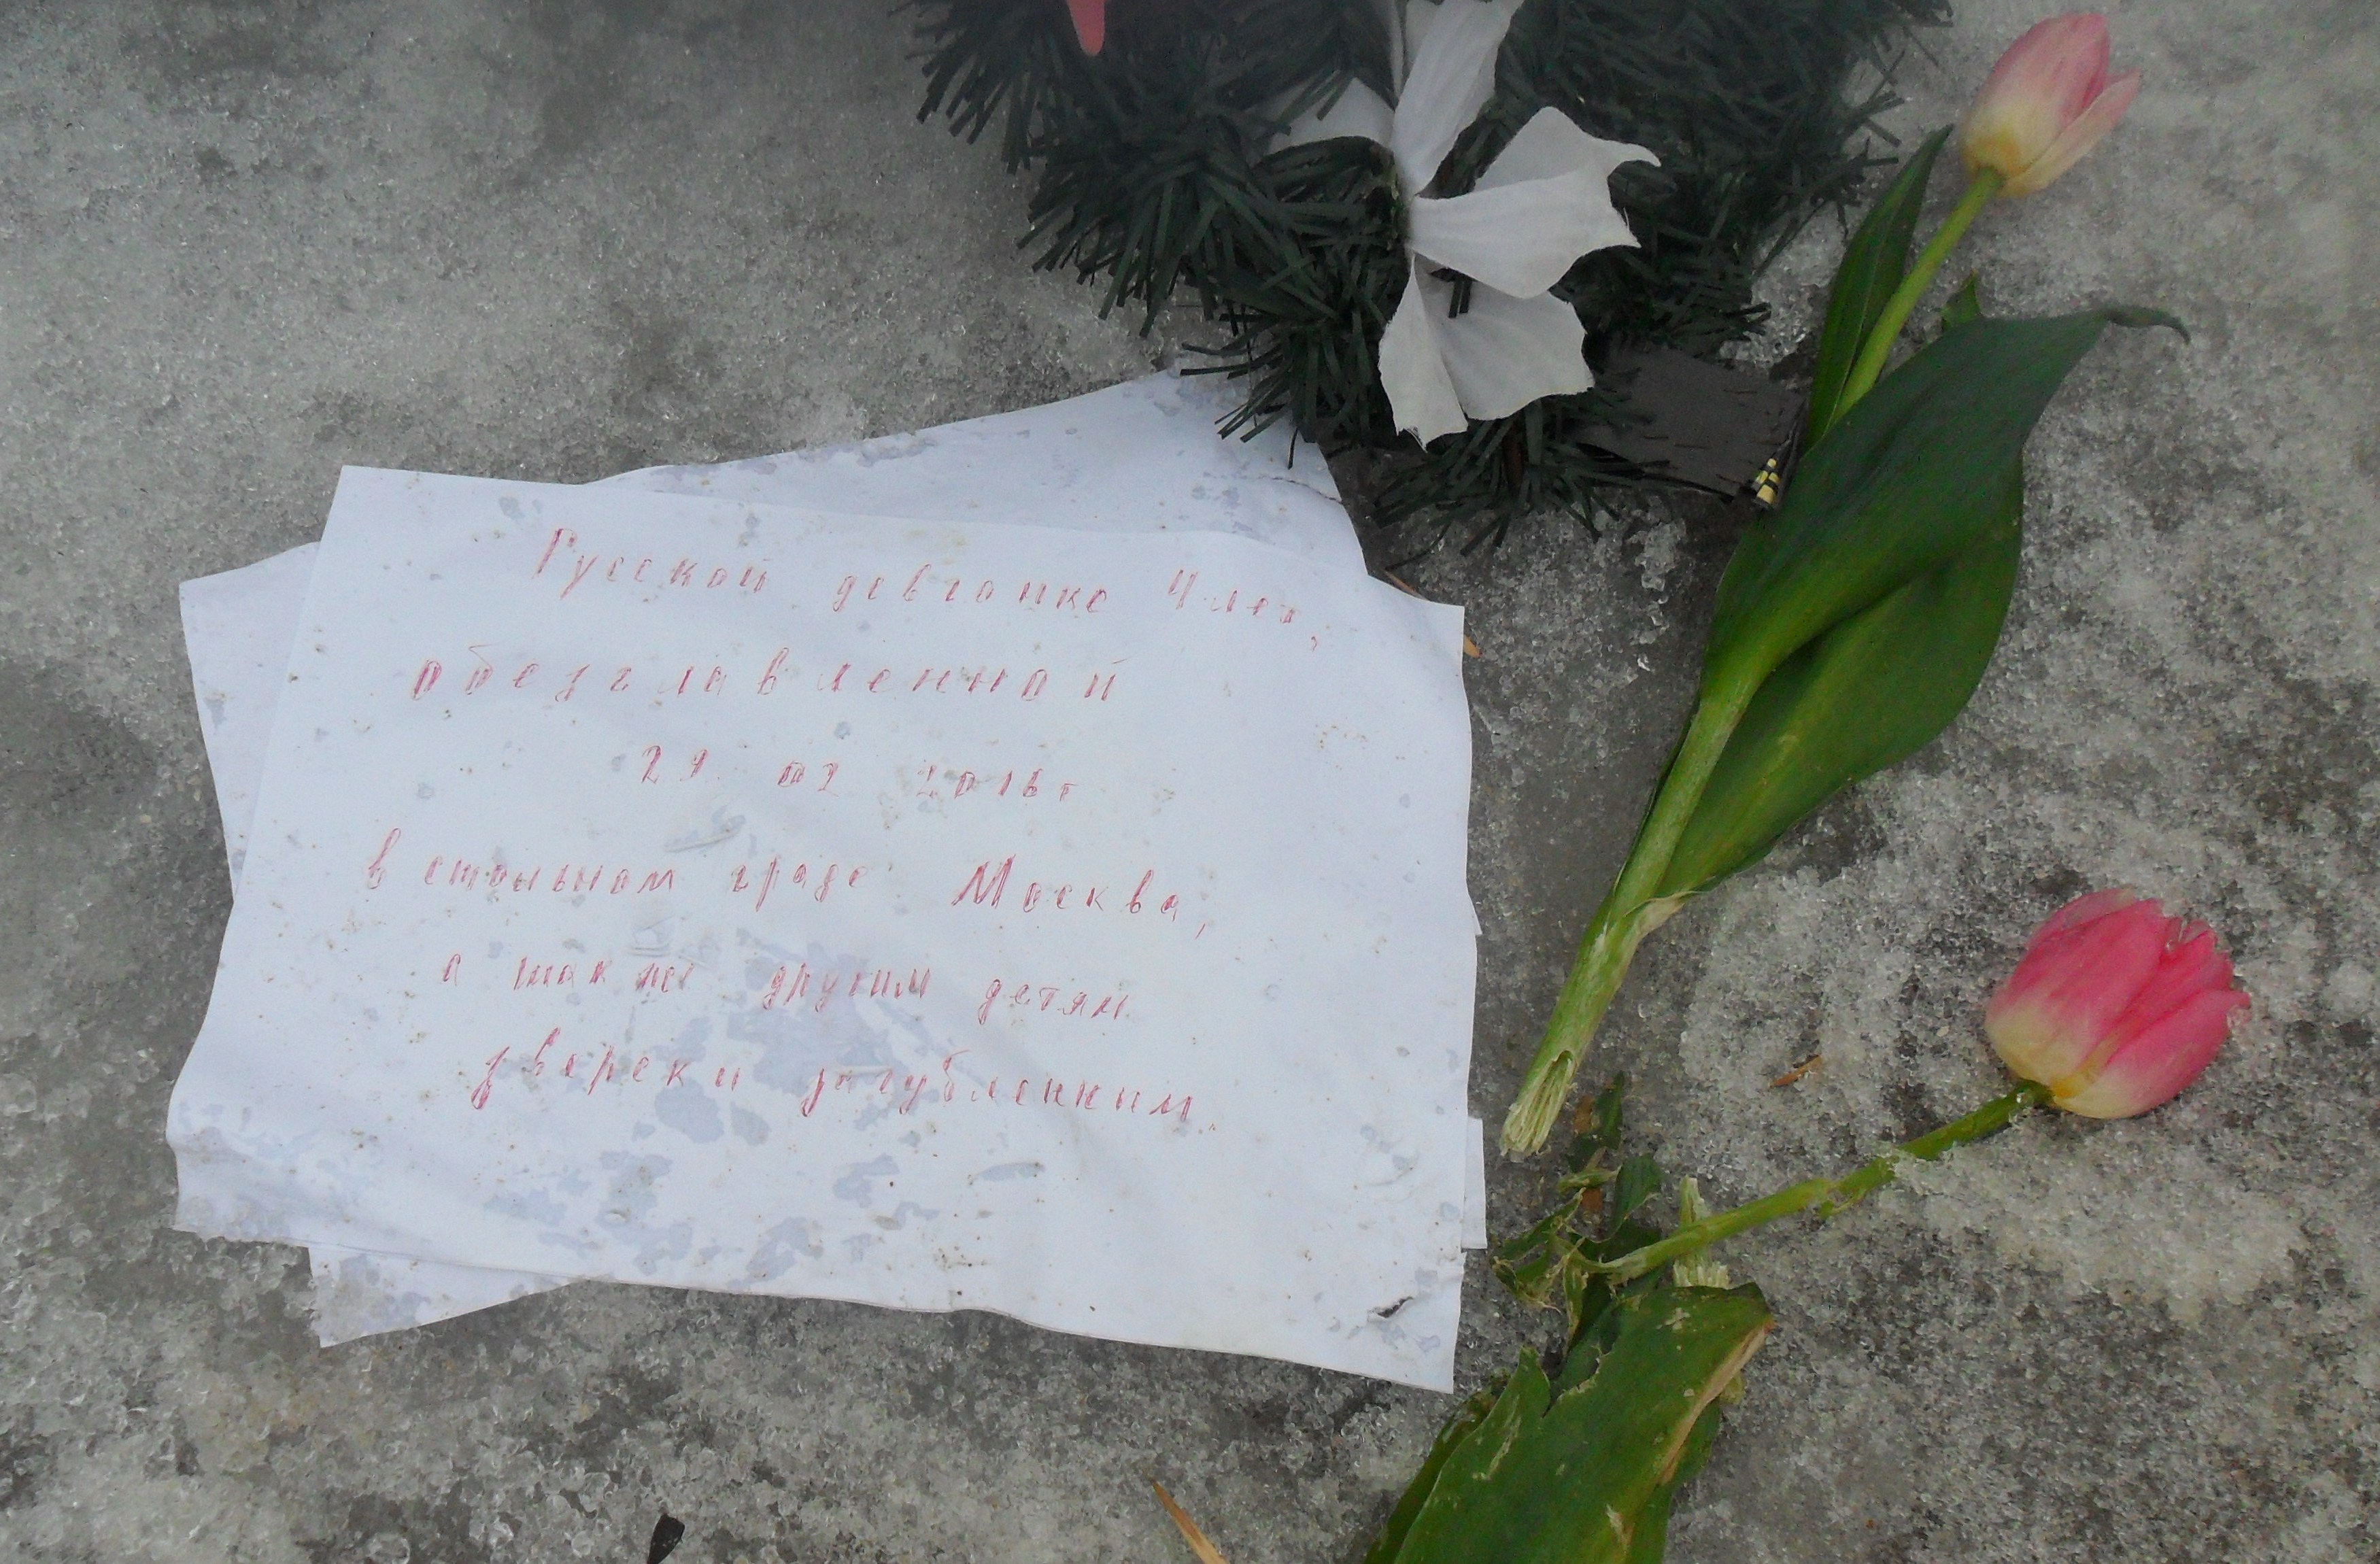 Русской девчонке 4 лет,
обезглавленной
29 02 2016г
в стольном граде Москва,
а также другим детям
зверски загубленным.